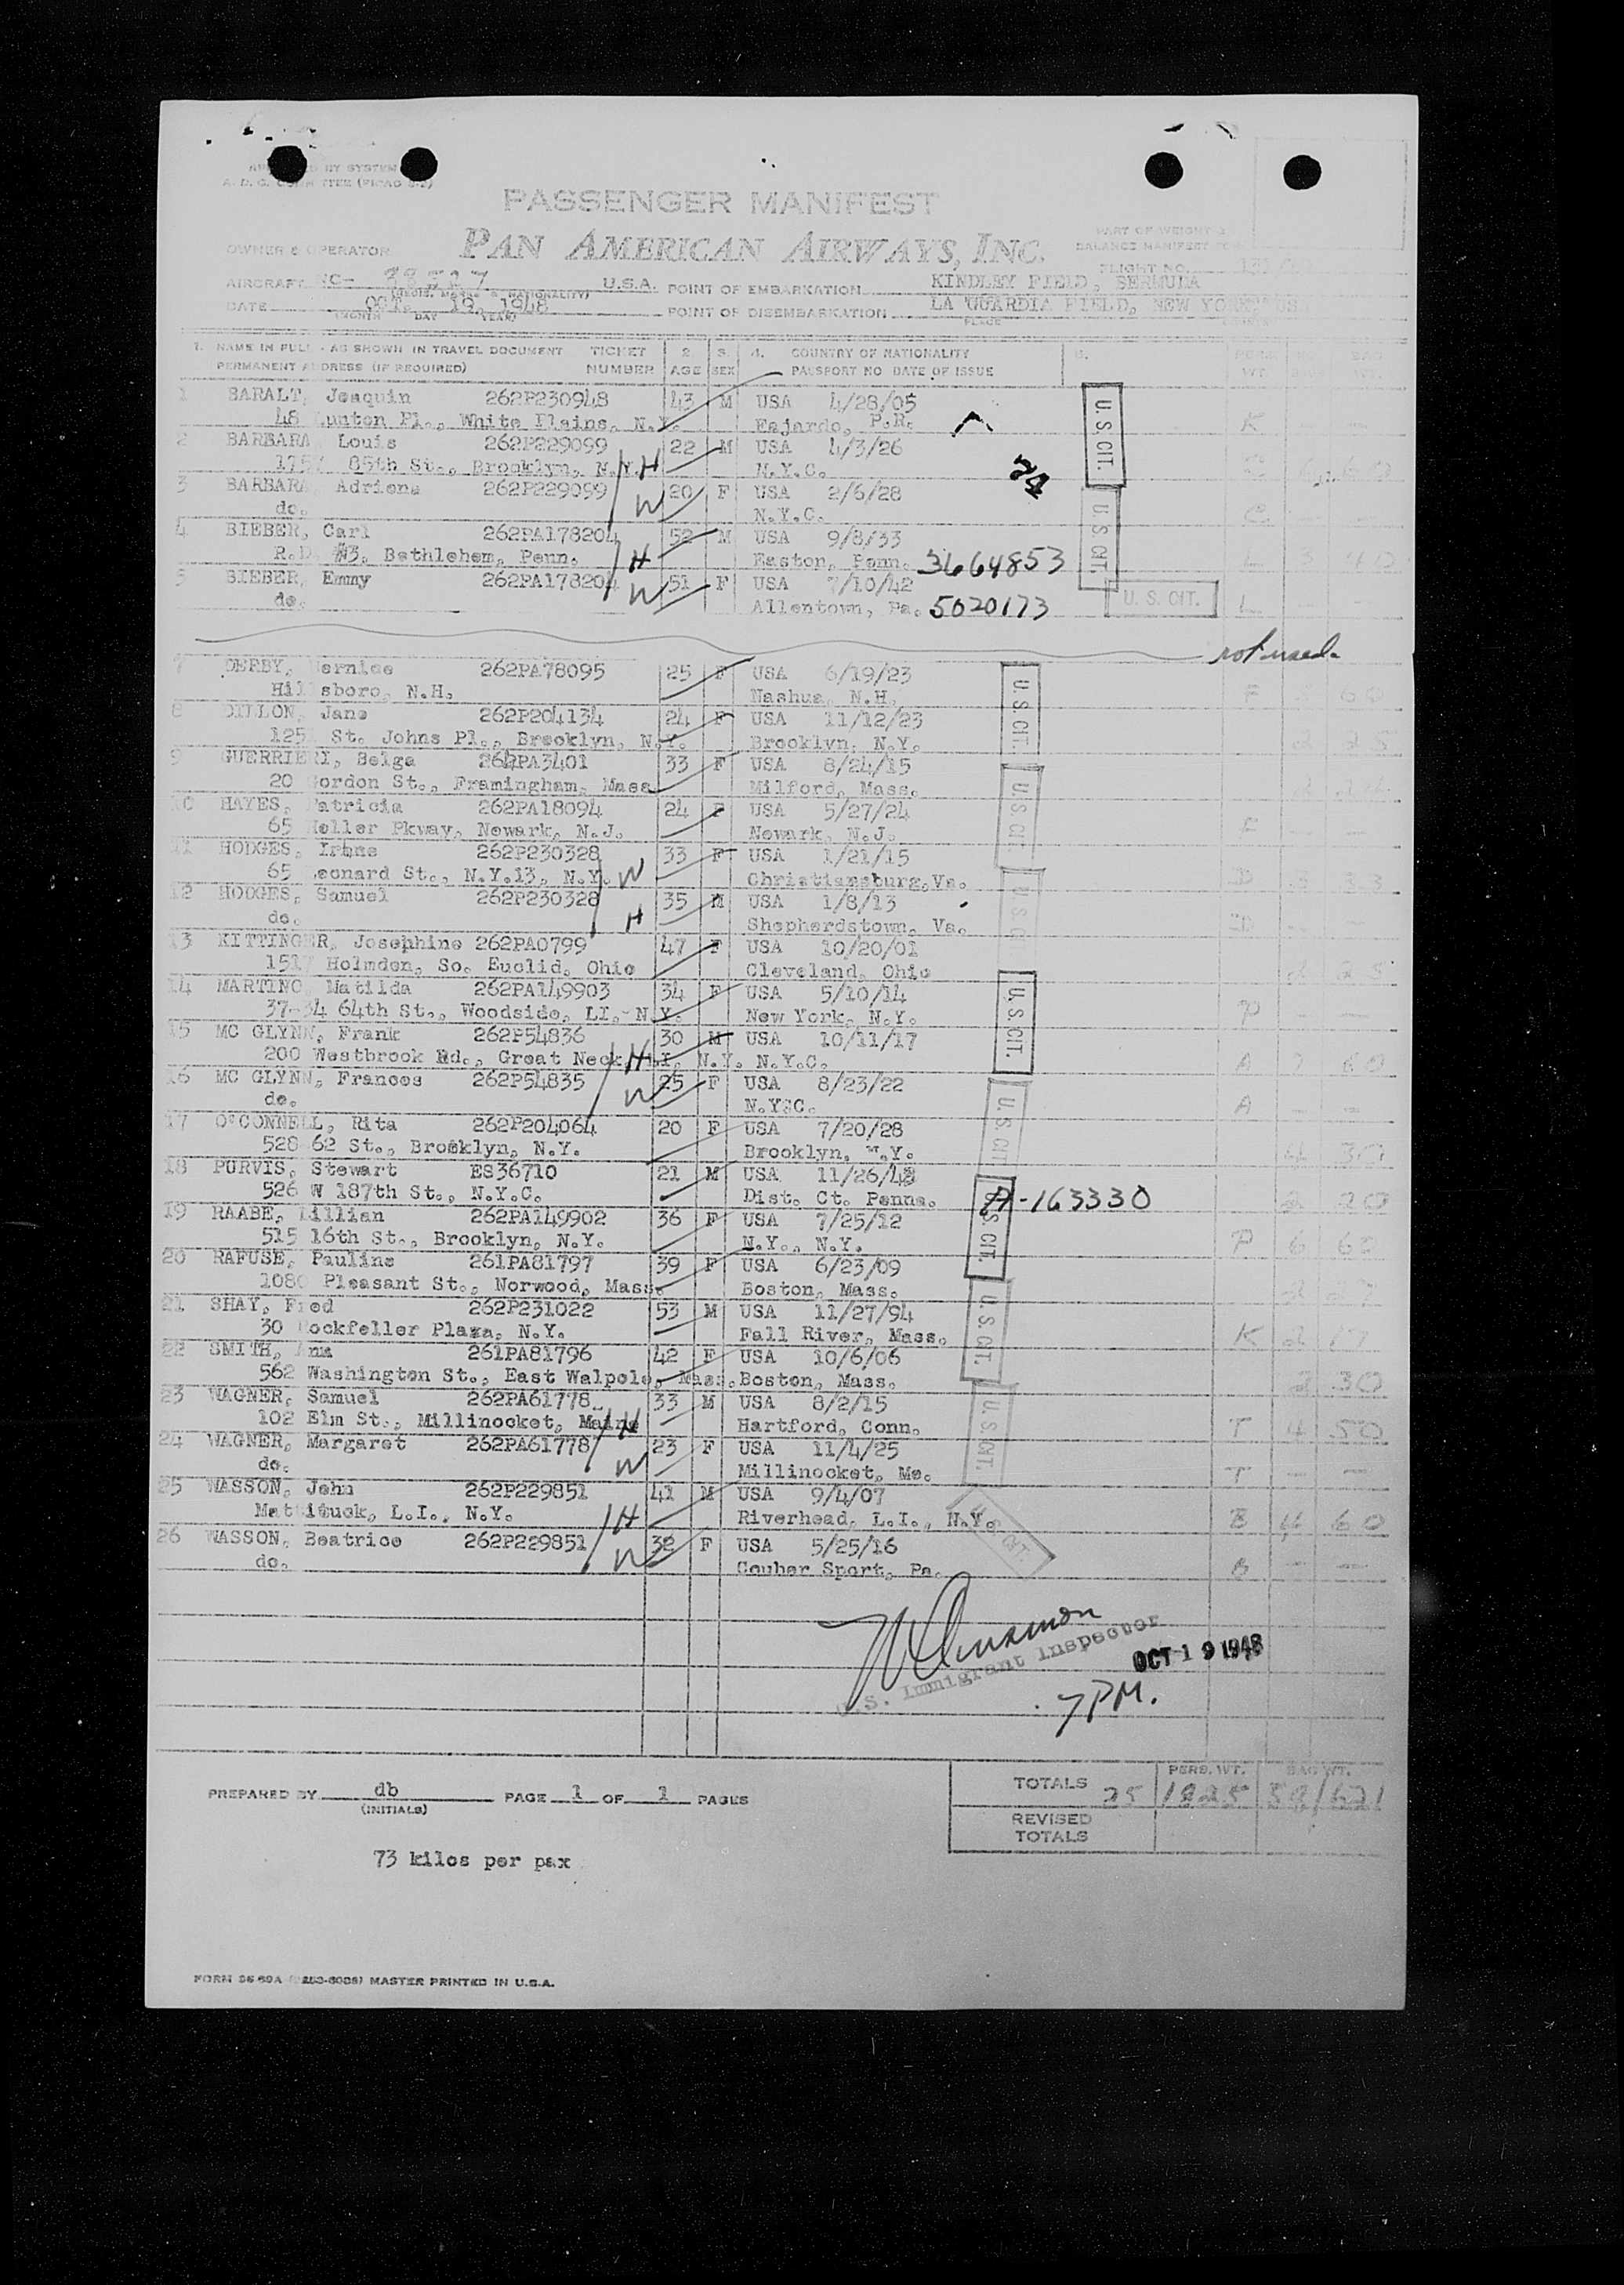 PASSENGER MANIFEST
PAN AMERICAN AIRWAYS, INC.
OWNER & OPERATOR
PART OF WEIGHT &
BALANCE MANIFEST FOR
FLIGHT NO.
AIRCRAFT NC- U.S.A. POINT OF EMBARKATION KINDLEY FIELD, BERMUDA
DATE 19, 1948 POINT OF DISEMBARKATION LA GUARDIA FIELD, NEW YORK,
MONTH DAY YEAR PLACE
1. NAME IN FULL - AS SHOWN IN TRAVEL DOCUMENT TICKET 2. 3. 4. COUNTRY OF NATIONALITY
PERMANENT ADDRESS (IF REQUIRED) NUMBER AGE SEX PASSPORT NO DATE OF ISSUE
1 BARALT, Joaquin 262P230948 43 M USA 4/28/05 U.S. CIT.
48 unton Pl., White Plains, N.Y. Fajardo, P.R. K
2 BARBARA Louis 262P229099 22 M USA 4/3/26
175 85th St., Brooklyn, N.Y. H N.Y.C. 24
3 BARBARA Adriena 262P229099 20 F USA 2/6/28 U.S. CIT.
do. W N.Y.C. C
4 BIEBER, Carl 262PA178204 52 M USA 9/8/33
R.D. #3, Bethlehem, Penn. H Easton, Penn. 3664853 L
5 BIEBER, Emmy 262PA178204 51 F USA 7/10/42 U. S. CIT.
do. W Allentown, Pa. 5020173 L
not used.
7 DERBY, ernice 262PA78095 25 F USA 6/19/23 U.S. CIT.
Hillsboro, N.H. Nashua, N.H. F 60
8 DILLON, Jane 262P204134 24 F USA 11/12/23
125 St. Johns Pl., Brooklyn, N.Y. Brooklyn, N.Y.
9 GUERRIERI, Belga 264PA3401 33 F USA 8/24/15 U.S. CIT.
20 Gordon St., Framingham, Mass Milford, Mass.
10 HAYES, Patricia 262PA18094 24 F USA 5/27/24
65 Heller Pkway, Newark, N.J. Newark, N.J. F
11 HODGES, Irene 262P230328 33 F USA 1/21/15
65 Leonard St., N.Y.13, N.Y. W Christiansburg,Va. D
12 HODGES, Samuel 262P230328 35 M USA 1/8/13
do. H Shepherdstown, Va. D
13 KITTINGER, Josephine 262PA0799 47 F USA 10/20/01
151 Holmden, So. Euclid, Ohio Cleveland, Ohio
14 MARTINO Matilda 262PA149903 34 F USA 5/10/14 U.S. CIT.
37-34 64th St., Woodside, LI, N.Y. New York, N.Y. P
15 MC GLYNN, Frank 262P54836 30 M USA 10/11/17
200 Westbrook Rd., Great Neck, H N.Y. N.Y.C. A 7 60
16 MC GLYNN, Frances 262P54835 25 F USA 8/23/22 U.S. CIT.
do. W N.Y.C. A
17 O'CONNELL, Rita 262P204064 20 F USA 7/20/28
528 62 St., Brooklyn, N.Y. Brooklyn, N.Y. 4 30
18 PURVIS, Stewart ES36710 21 M USA 11/26/48
526 W 187th St., N.Y.C. Dist. Ct. Penna. A-163330 2 20
19 RAABE, Lillian 262PA149902 36 F USA 7/25/12 U.S. CIT.
515 16th St., Brooklyn, N.Y. N.Y., N.Y. P 6 60
20 RAFUSE, Pauline 261PA81797 39 F USA 6/23/09
1080 Pleasant St., Norwood, Mass. Boston, Mass.
21 SHAY, Fred 262P231022 53 M USA 11/27/94 U.S. CIT.
30 Rockfeller Plaza, N.Y. Fall River, Mass. K 2 17
22 SMITH, Ann 261PA81796 42 F USA 10/6/06
562 Washington St., East Walpole, Mass. Boston, Mass. 2 30
23 WAGNER, Samuel 262PA61778 33 M USA 8/2/15 U.S. CIT.
102 Elm St., Millinocket, Maine H Hartford, Conn. T 4 50
24 WAGNER, Margaret 262PA61778 23 F USA 11/4/25
do. W Millinocket, Me. T
25 WASSON, John 262P229851 41 M USA 9/4/07
Mattituck, L.I., N.Y. H Riverhead, L.I., N.Y. CIT. B 4 60
26 WASSON, Beatrice 262P229851 32 F USA 5/25/16
do. W Couher Sport, Pa. B
U.S. Immigrant Inspector
OCT 19 1948
7PM.
PREPARED BY db PAGE 1 OF 1 PAGES
(INITIALS)
PERS. WT. BAG WT.
TOTALS 25 1825
REVISED
TOTALS
73 kilos per pax
MASTER PRINTED IN U.S.A.